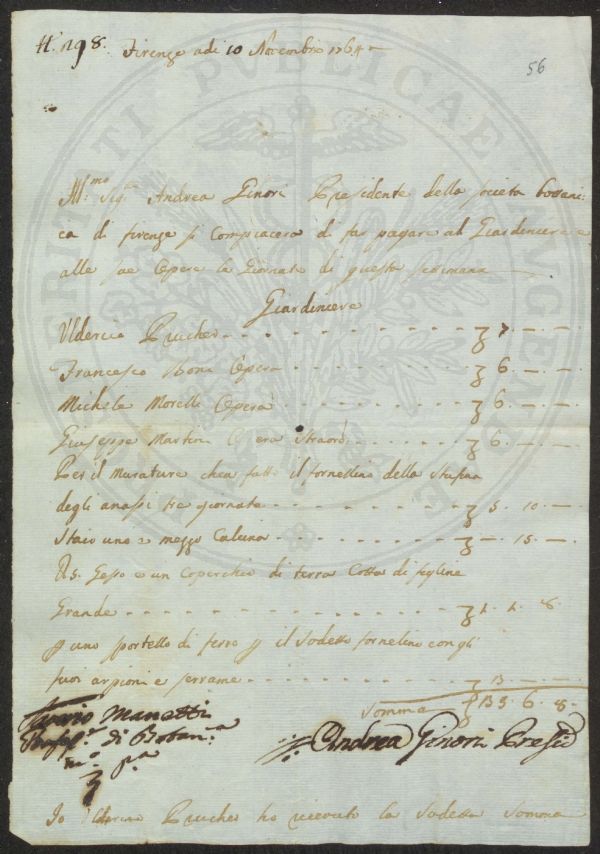 N. 198. Firenze adi 10 Novembre 1764
56
Ill.mo Sig. Andrea Ginori Presidente della società bottani:
ca di firenze si Compiacerà di far pagare al Giardiniere e
alle sue Opere le Giornate di questa settimana
Giardiniere
Ulderico Prucher 7
Francesco Boni Opera 6
Michele Morelli Opera 6
Giuseppe Martini Opera straord. 6
Per il Muratore che a fatto il fornellino della stufina
degli anassi tre giornate 5. 10
Staio uno e mezzo Calcina 15
Gesso e un Coperchio di terra Cotta di figline
Grande 1. 1. 8
p uno sportello di ferro p il sodetto fornelino con gli
suoi arpioni e serrame 13
Somma 6. 8
Saverio Manetti
Profes.re di Botan.a
m.o p.a
Andrea Ginori Presid
Io Ulderico Prucher ho ricevuto la sodetta somma
PUBLICAE